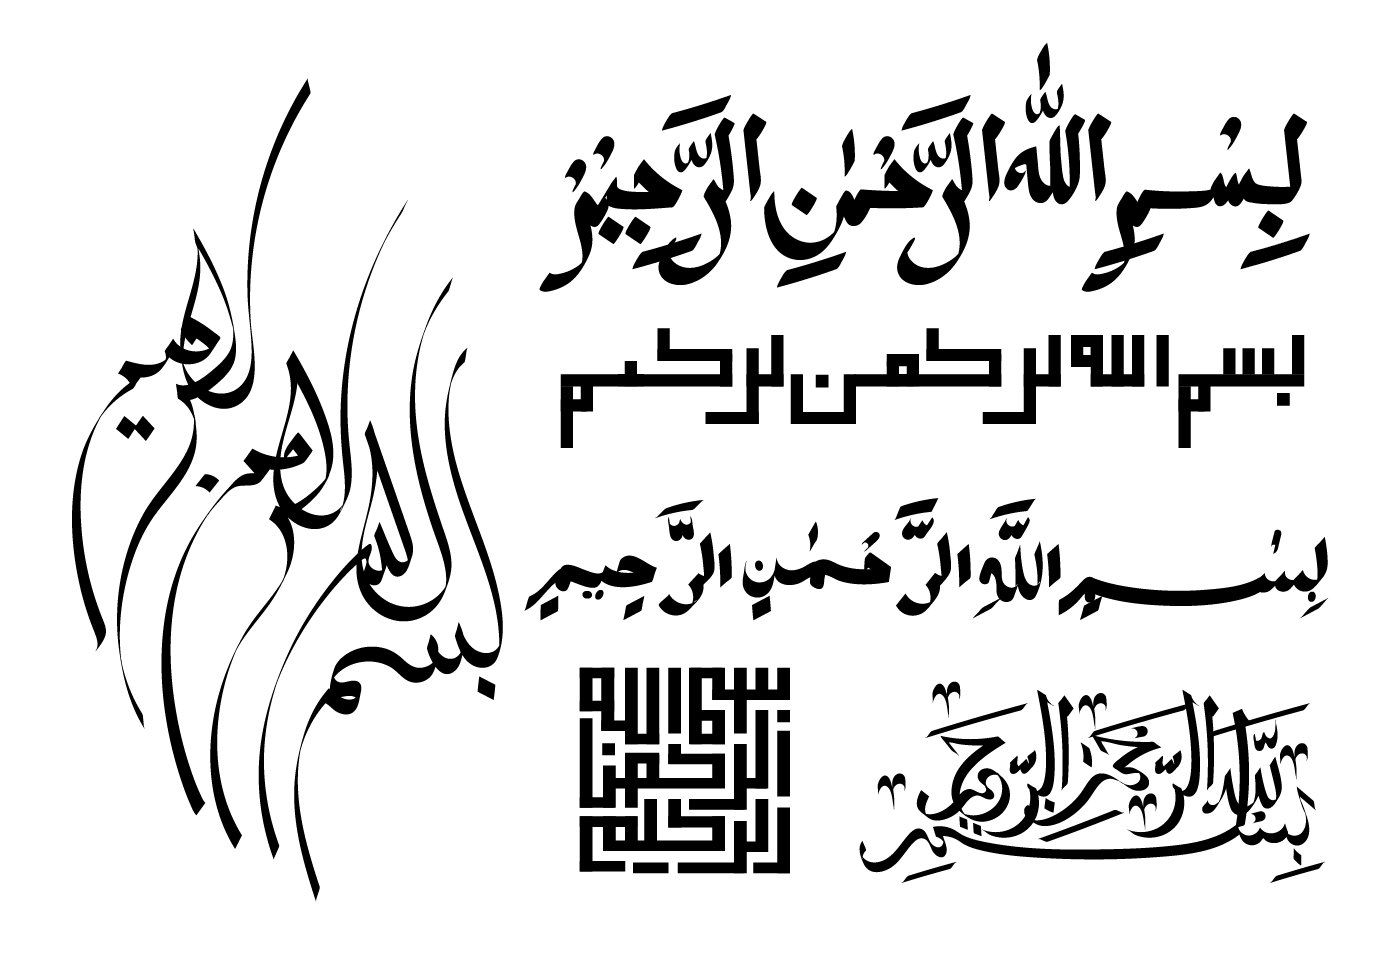 بِسْمِ اللّٰهِ الرَّحْمٰنِ الرَّحِيْمِ
بسم الله الرحمن الرحيم
بِسْمِ اللَّهِ الرَّحْمٰنِ الرَّحِيمِ
بسم الله الرحمن الرحيم
بِسْمِ اللّٰهِ الرَّحْمٰنِ الرَّحِيمِ
بسم
الله
الرحمن
الرحيم